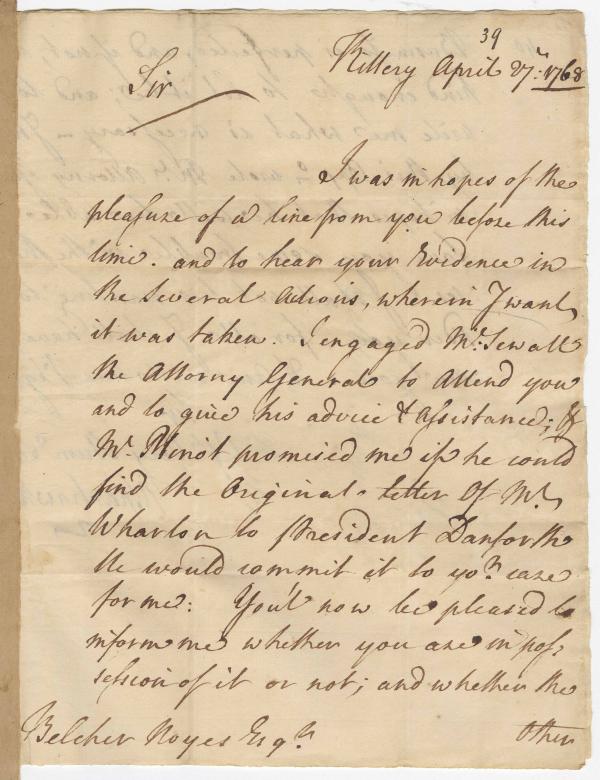 39
Kittery April 27th: 1768
Sir
I was in hopes of the
pleasure of a line from you before this
time. and to hear your Evidence in
the Several Actions, wherein I want,
it was taken. I engaged Mr. Sewall
the Attorny General to Attend you
and to give his advice & Assistance; &
Mr Minot promised me if he could
find the Original letter Of Mr.
Wharton to President Danforth
He would commit it to yor. care
for me: You'l now be pleased to
inform me whether you are in pos,
session of it or not; and whether the
Belcher Noyes Esqr.
other